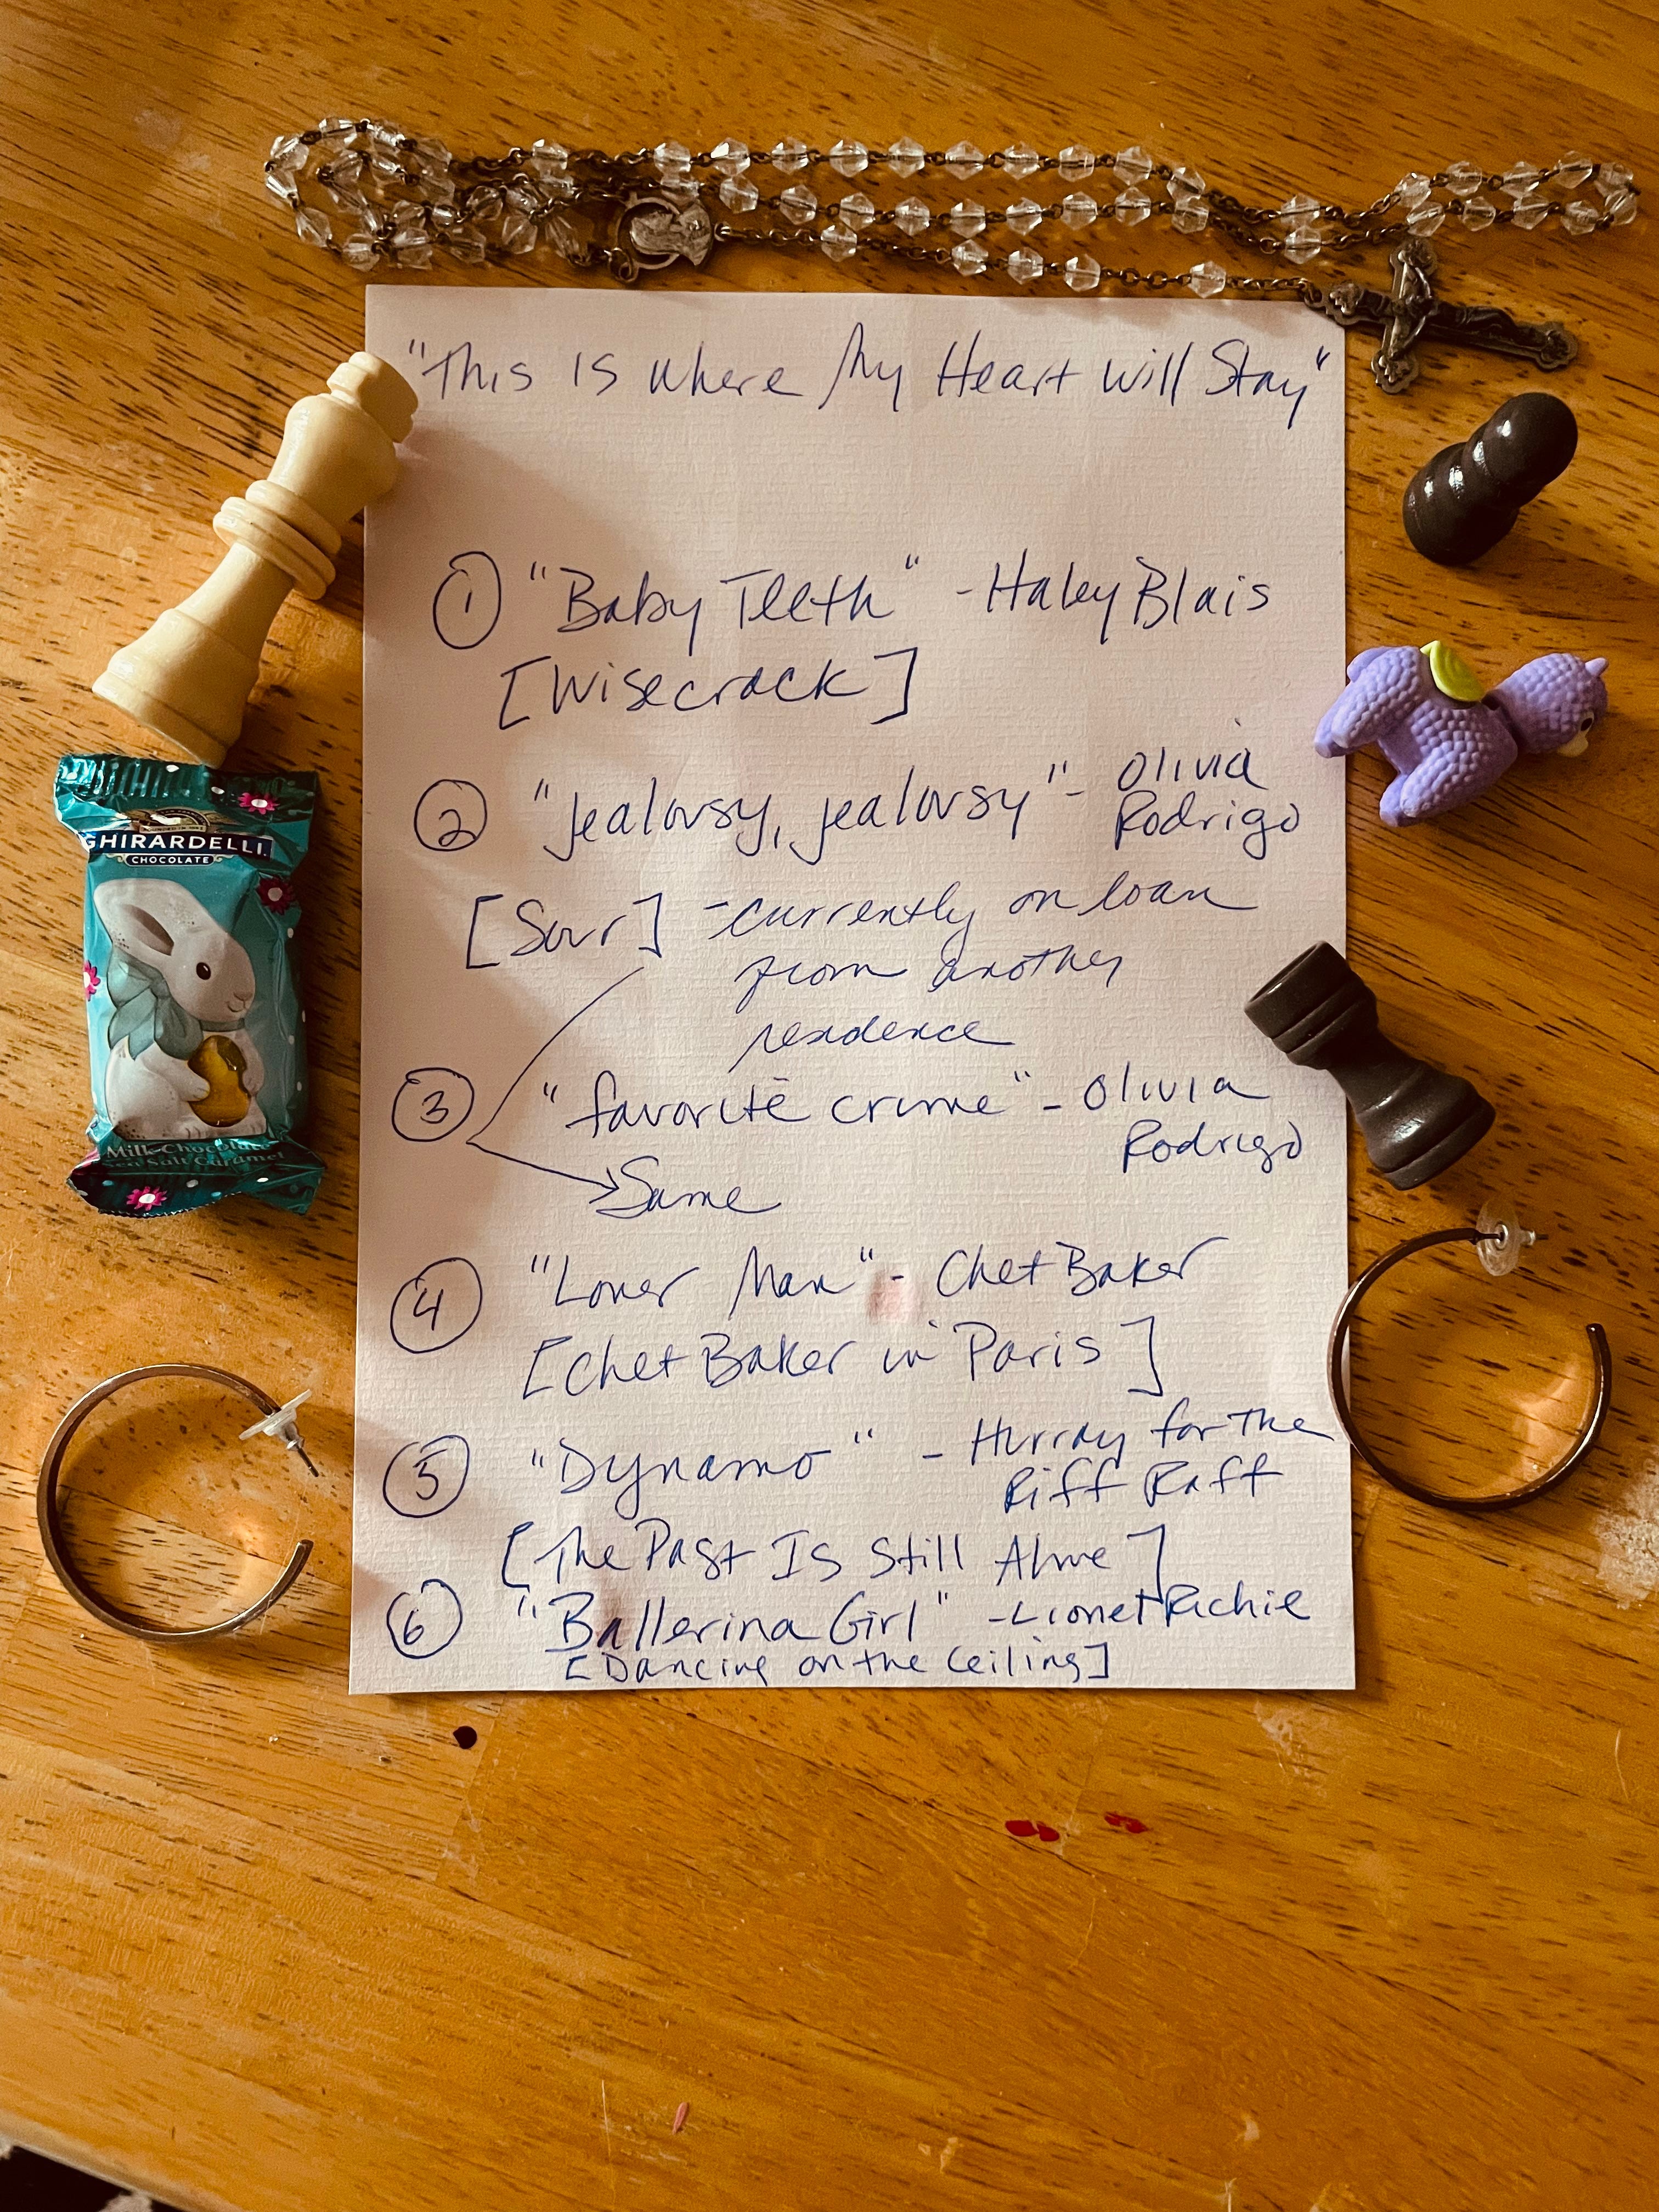 "This Is Where My Heart Will Stay"
① "Baby Teeth" - Haley Blais
[Wisecrack]
② "jealousy, jealousy" - Olivia
Rodrigo
[Sour] - currently on loan
from another
residence
③ "favorite crime" - Olivia
Rodrigo
Same
④ "Lover Man" - Chet Baker
[Chet Baker in Paris]
⑤ "Dynamo" - Hurray for The
Riff Raff
[The Past Is Still Alive]
⑥ "Ballerina Girl" - Lionel Richie
[Dancing on the Ceiling]
GHIRARDELLI
CHOCOLATE
Milk Chocolate
Sea Salt Caramel